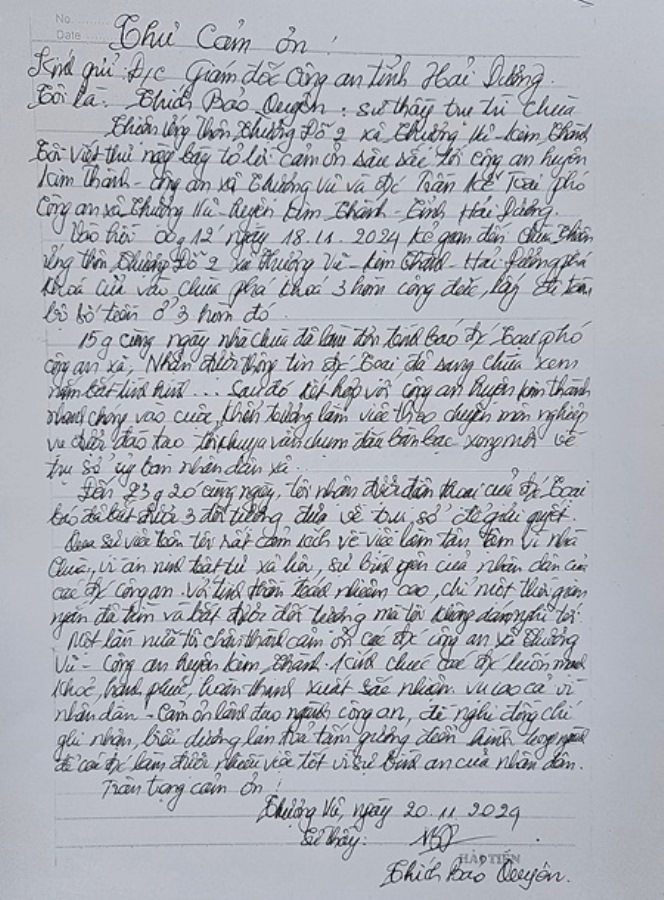 No.
Date
Thư Cảm ơn!
Kính gửi: Đ/c Giám đốc Công an tỉnh Hải Dương.
Tôi là: Thích Bảo Quyên: sư thầy trụ trì chùa
Thiên ứng thôn Thượng Đỗ 2 xã Thượng Vũ - Kim Thành
Tôi viết thư này bày tỏ lời cảm ơn sâu sắc tới công an huyện
Kim Thành - Công an xã Thượng Vũ và đ/c Trần Toại phó
Công an xã Thượng Vũ - huyện Kim Thành - Tỉnh Hải Dương.
Vào hồi 00g12' ngày 18.11.2024 kẻ gian đến chùa Thiên
ứng thôn Thượng Đỗ 2 xã Thượng Vũ - Kim Thành - Hải Dương phá
khoá cửa vào chùa phá khoá 3 hòm công đức, lấy đi tiền
ở 3 hòm đó.
15g cùng ngày nhà chùa đã làm đơn trình báo đ/c Toại phó
công an xã, Nhận được thông tin đ/c Toại đã sang chùa xem
nắm bắt tình hình... Sau đó kết hợp với công an huyện Kim Thành
nhanh chóng vào cuộc, khẩn trương làm việc theo chuyên môn nghiệp
vụ được đào tạo tới khuya vẫn chụm đầu bàn bạc xong mới về
trụ sở uỷ ban nhân dân xã...
Đến 23g20 cùng ngày, tôi nhận được điện thoại của đ/c Toại
báo đã bắt được 3 đối tượng đưa về trụ sở để giải quyết.
Qua sự việc trên tôi rất cảm kích về việc làm tận tâm vì nhà
chùa, vì an ninh trật tự xã hội, sự bình yên của nhân dân của
các đ/c công an. Với tinh thần trách nhiệm cao, chỉ một thời gian
ngắn đã tìm và bắt được đối tượng mà tôi không dám nghĩ tới.
Một lần nữa tôi chân thành cảm ơn các đ/c công an xã Thượng
Vũ - Công an huyện Kim Thành. Kính chúc các đ/c luôn mạnh
khoẻ, hạnh phúc, hoàn thành xuất sắc nhiệm vụ cao cả vì
nhân dân - Cảm ơn lãnh đạo ngành công an, đề nghị đồng chí
ghi nhận, biểu dương lan toả tấm gương đến
để các đ/c làm được nhiều việc tốt vì sự bình an của nhân dân.
Trân trọng cảm ơn!
Thượng Vũ, ngày 20.11.2024
Sư thầy:
HẢI TIẾN
Thích Bảo Quyên.